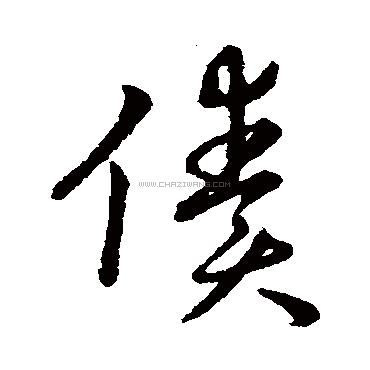 僕
www.chaziwang.com